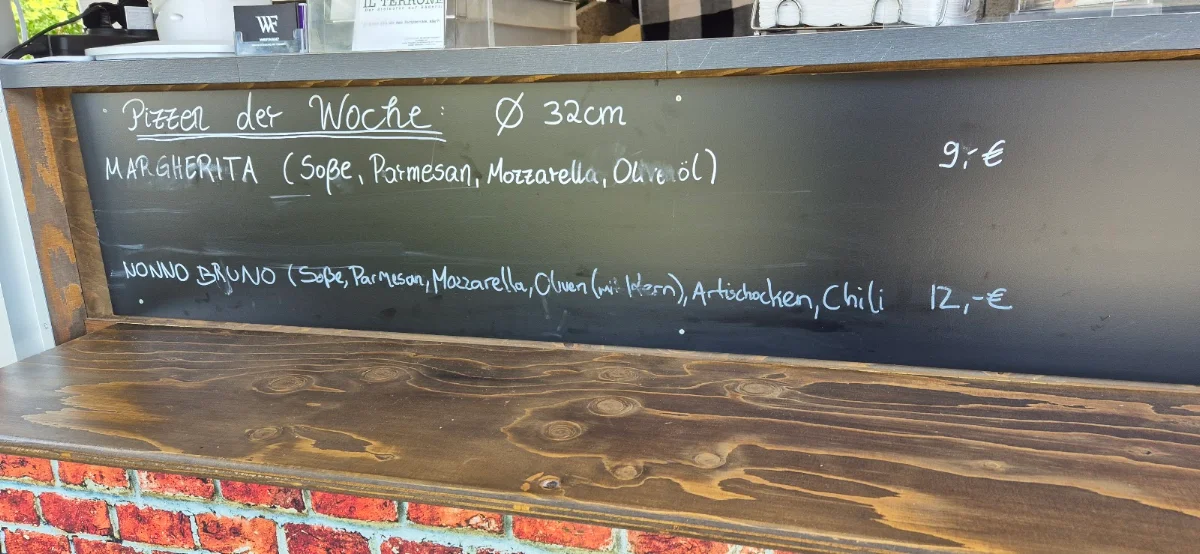 WF
IL TERRONE
Pizzen der Woche: Ø 32cm
MARGHERITA (Soße, Parmesan, Mozzarella, Olivenöl) 9,-€
NONNO BRUNO (Soße, Parmesan, Mozzarella, Oliven (mit Kern), Artischocken, Chili 12,-€